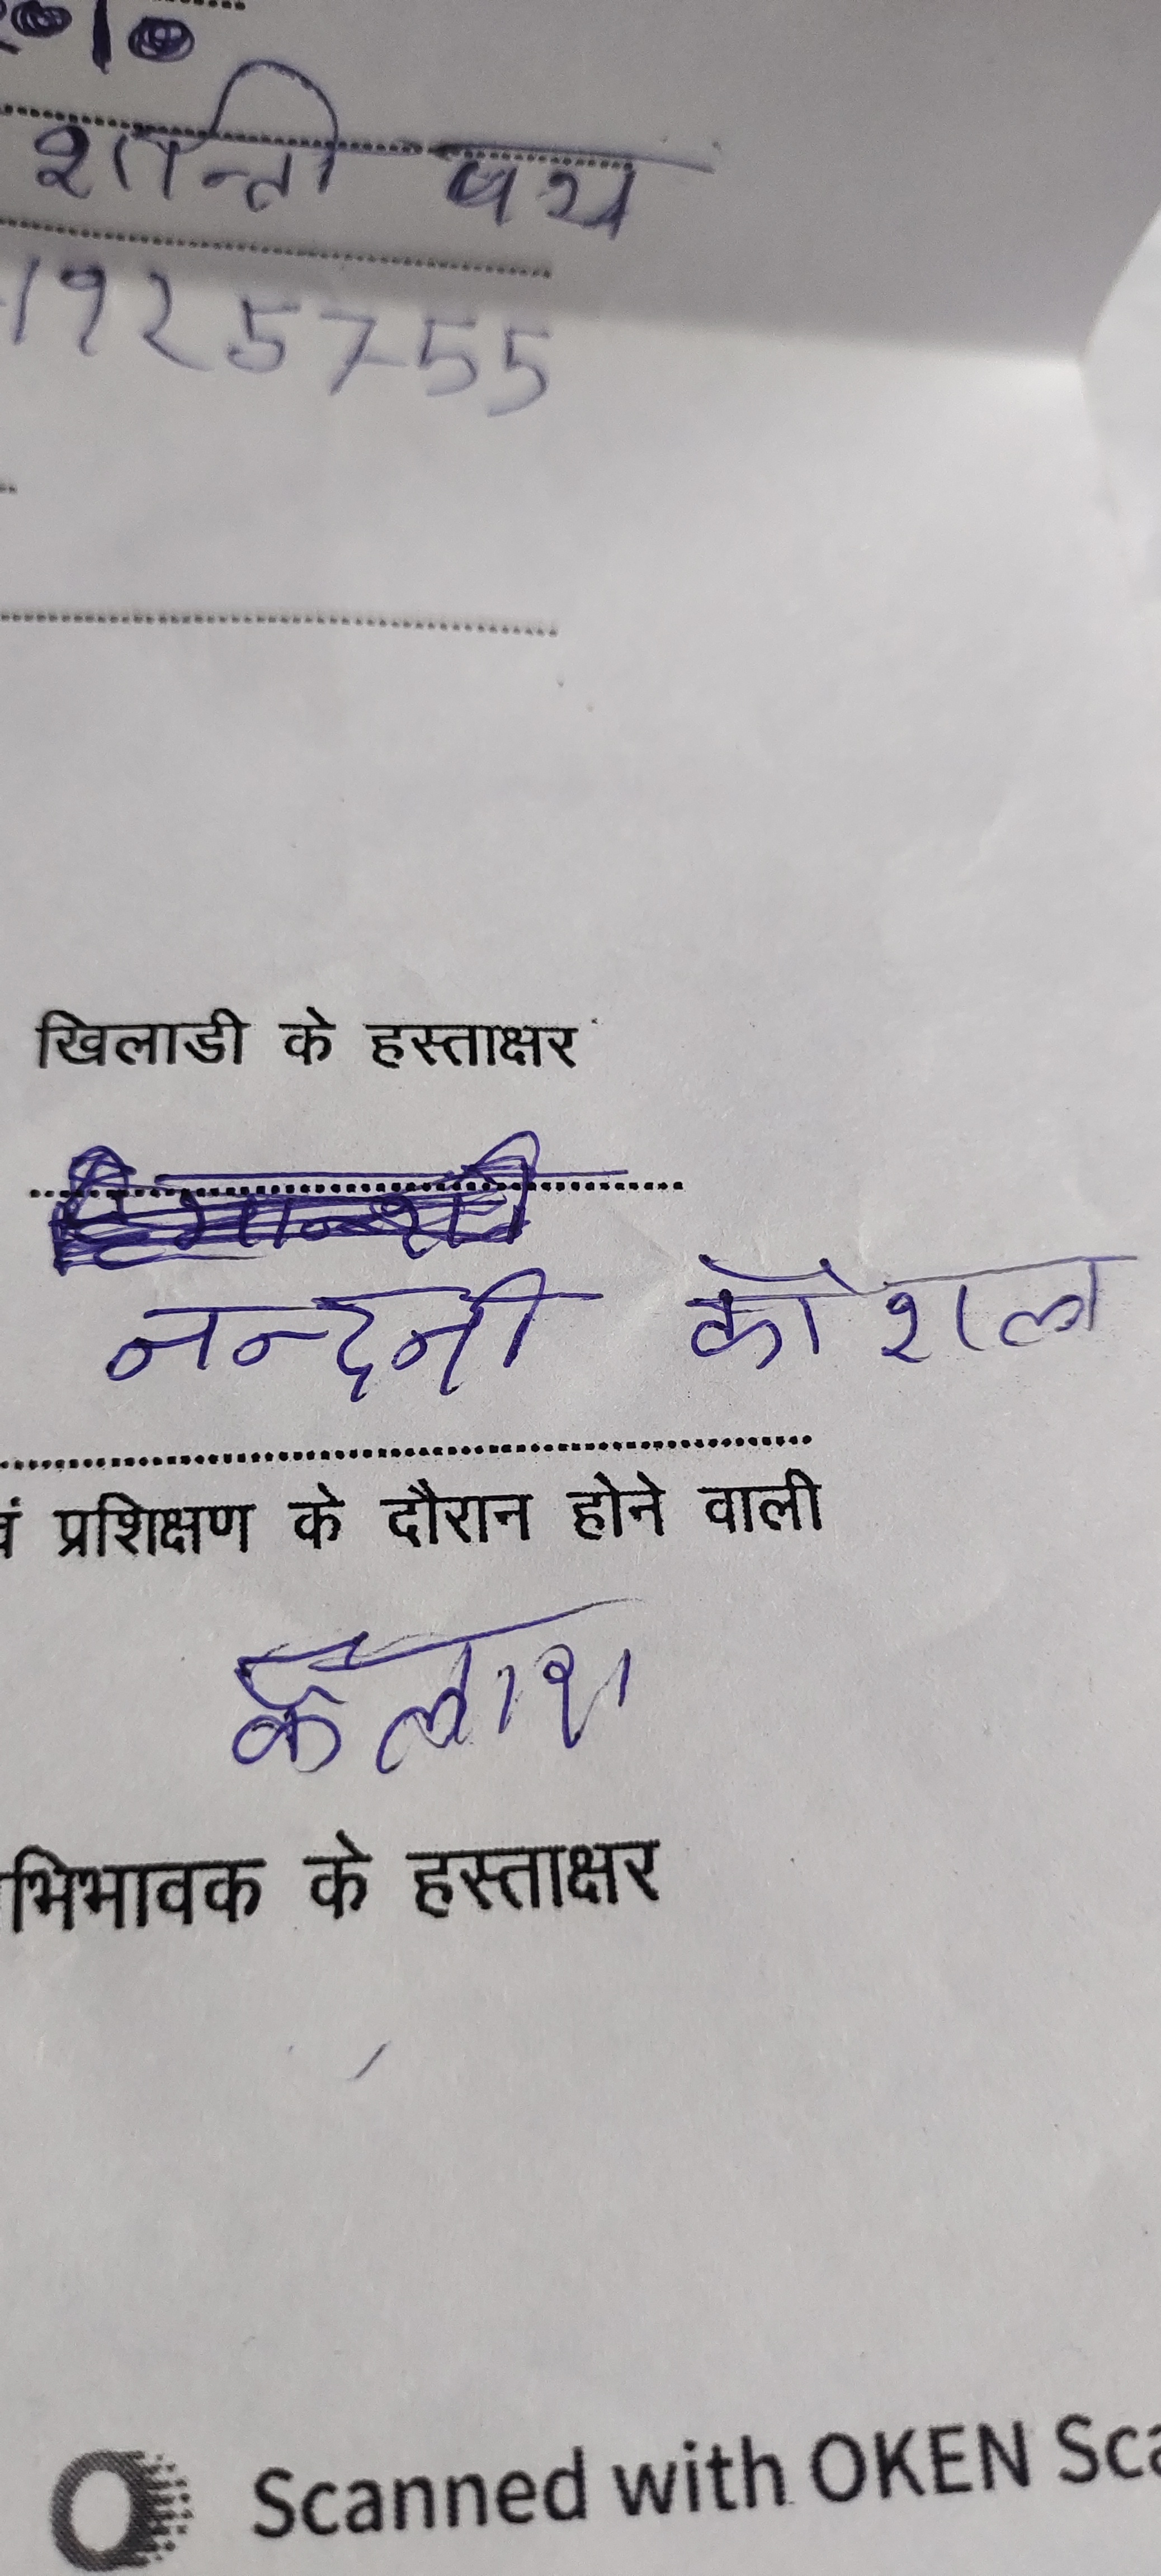 शान्ती पथ
1925755
खिलाडी के हस्ताक्षर
नन्दनी कौशल
वं प्रशिक्षण के दौरान होने वाली
कैलाश
भिभावक के हस्ताक्षर
Scanned with OKEN Sca